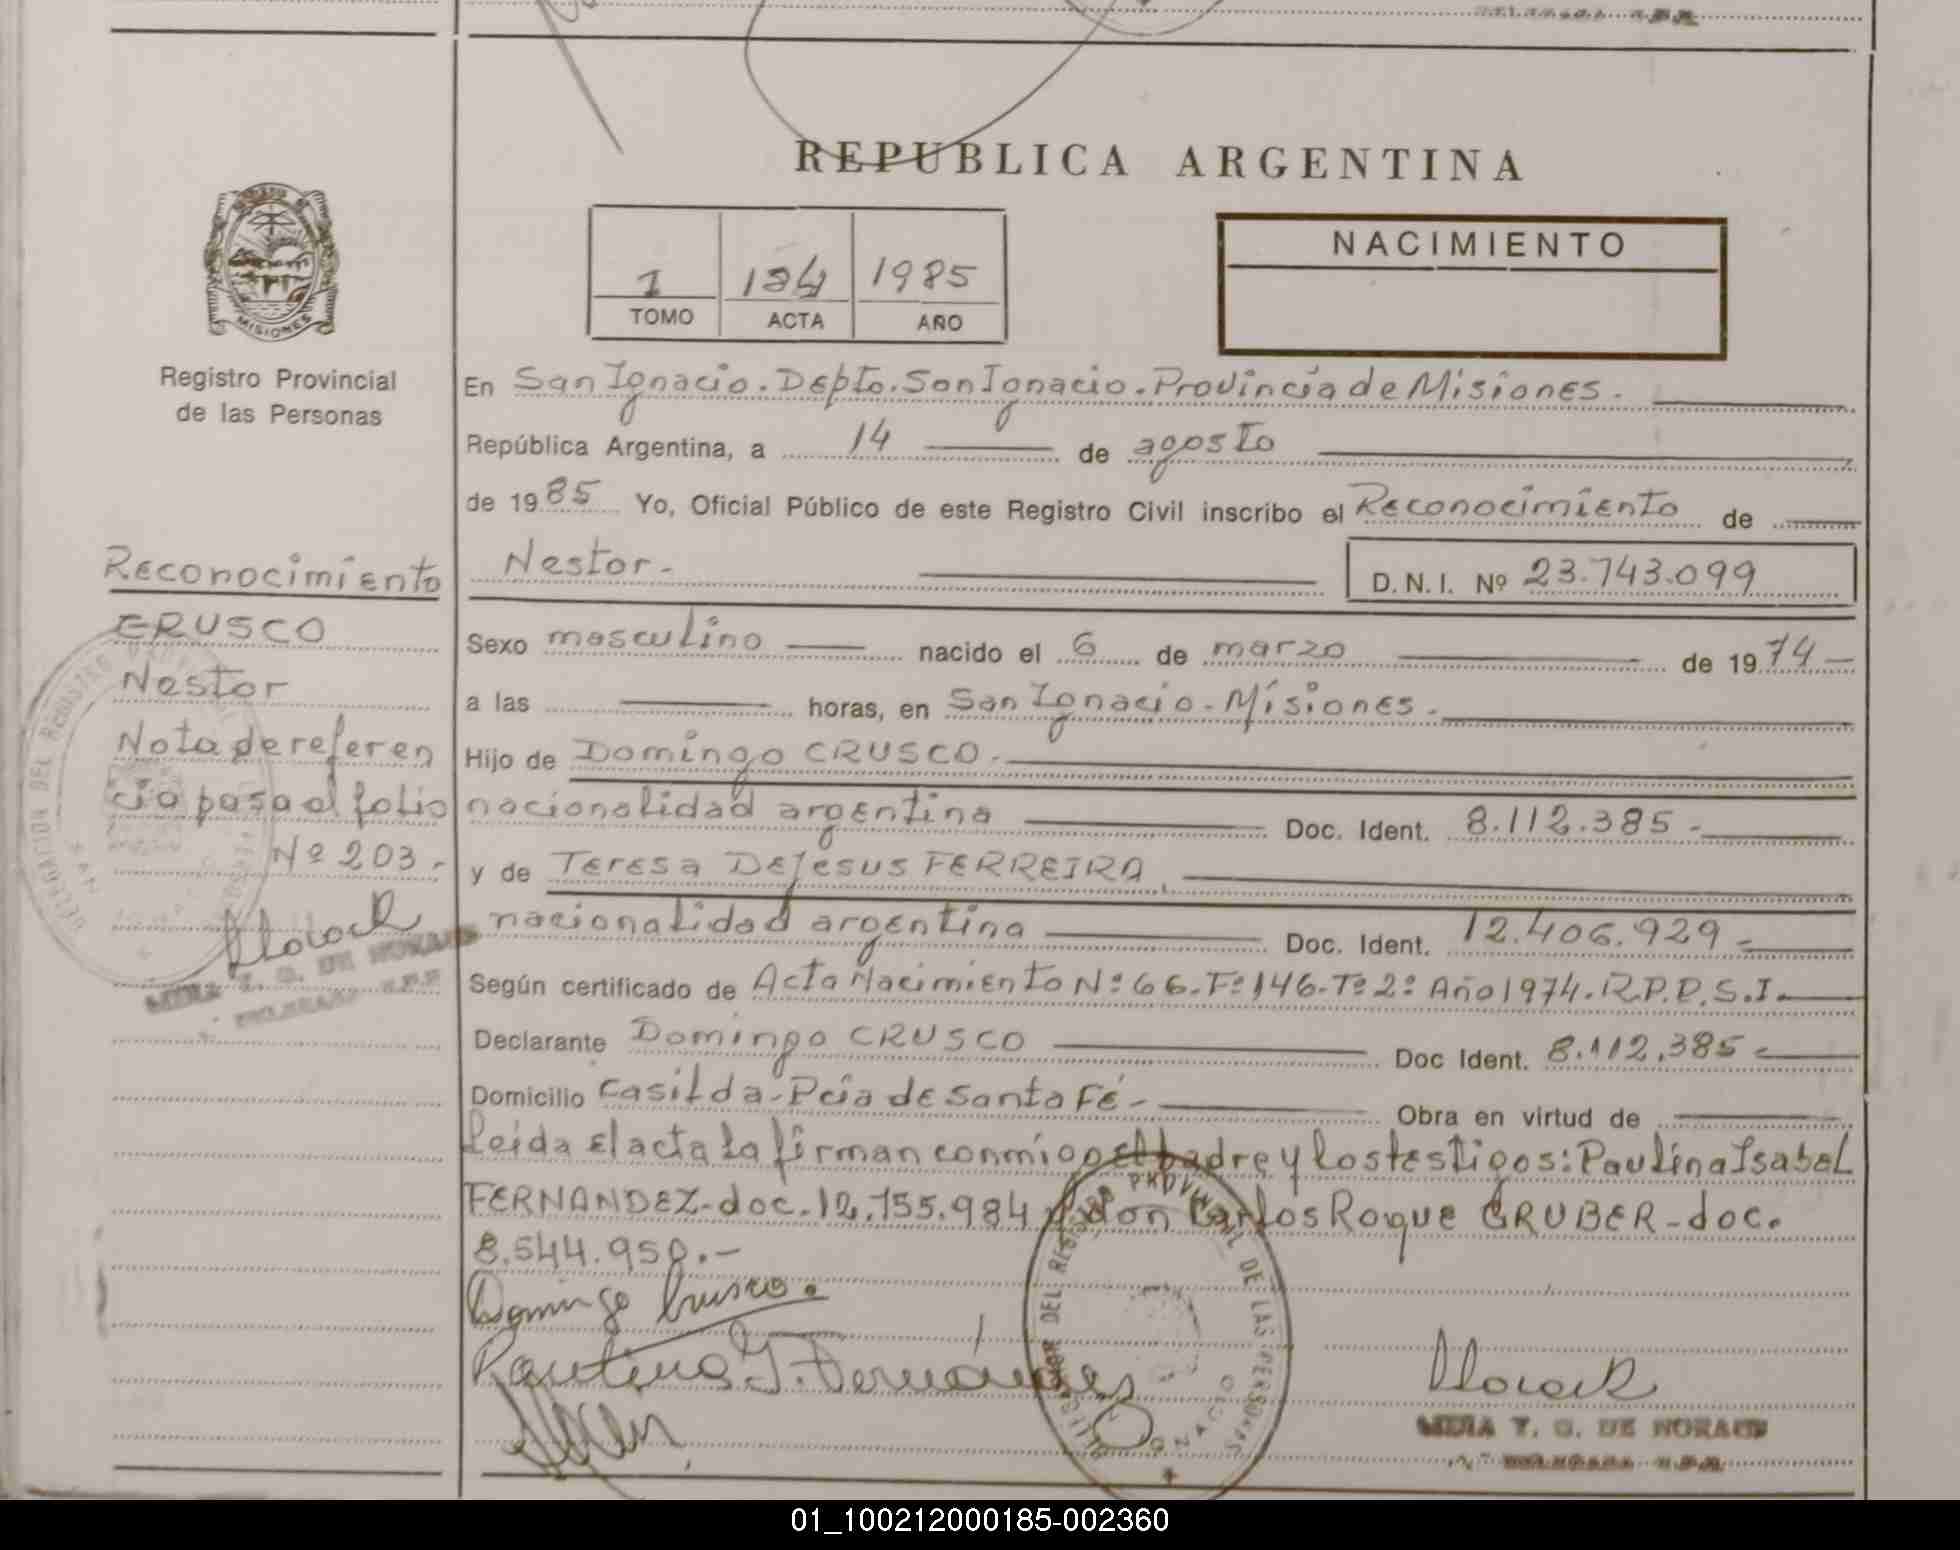 REPUBLICA ARGENTINA
MISIONES
Registro Provincial
de las Personas
1 184 1985
TOMO ACTA AÑO
NACIMIENTO
En San Ignacio. Depto. San Ignacio. Provincia de Misiones.
República Argentina, a 14 de agosto
de 1985 Yo, Oficial Público de este Registro Civil inscribo el Reconocimiento de
Nestor. D.N.I. Nº 23.743.099
Sexo masculino nacido el 6 de marzo de 1974
a las horas, en San Ignacio - Misiones.
Hijo de Domingo CRUSCO.
nacionalidad argentina Doc. Ident. 8.112.385.
y de Teresa DeJesus FERREIRA
nacionalidad argentina Doc. Ident. 12.406.929
Según certificado de Acta Nacimiento Nº 66. Fº 146. Tº 2º Año 1974. R.P.P.S.I.
Declarante Domingo CRUSCO Doc Ident. 8.112.385
Domicilio Casilda - Pcia de Santa Fé - Obra en virtud de
Leida El acta La firman conmigo el padre y los testigos: Paulina Isabel
FERNANDEZ - doc. 12.755.984 y don Carlos Roque GRUBER - doc.
8.544.950.-
Domingo Crusco.
Paulina I. Fernández
DELEGACION DEL REGISTRO PROVINCIAL DE LAS PERSONAS
T. G. DE MORAES
Reconocimiento
CRUSCO
Nestor
Nota de referen
cia pasa al folio
Nº 203.
DELEGACION DEL REGISTRO
SAN
T. G. DE MORAES
01_100212000185-002360